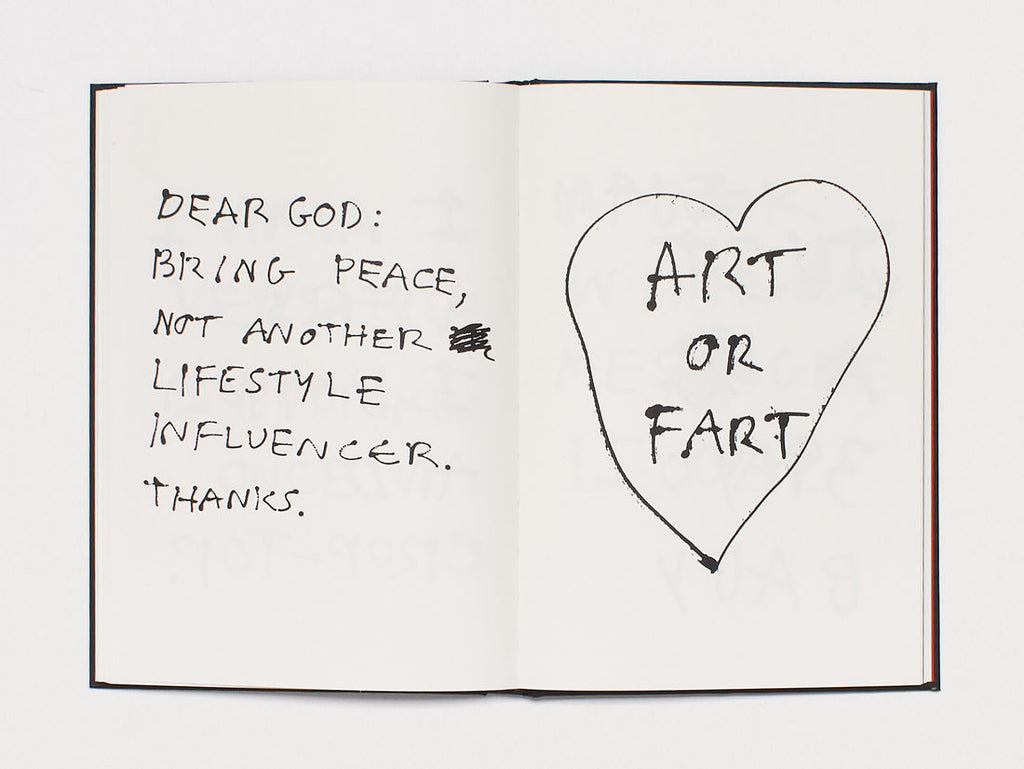 DEAR GOD:
BRING PEACE,
NOT ANOTHER
LIFESTYLE
INFLUENCER.
THANKS.
ART
OR
FART